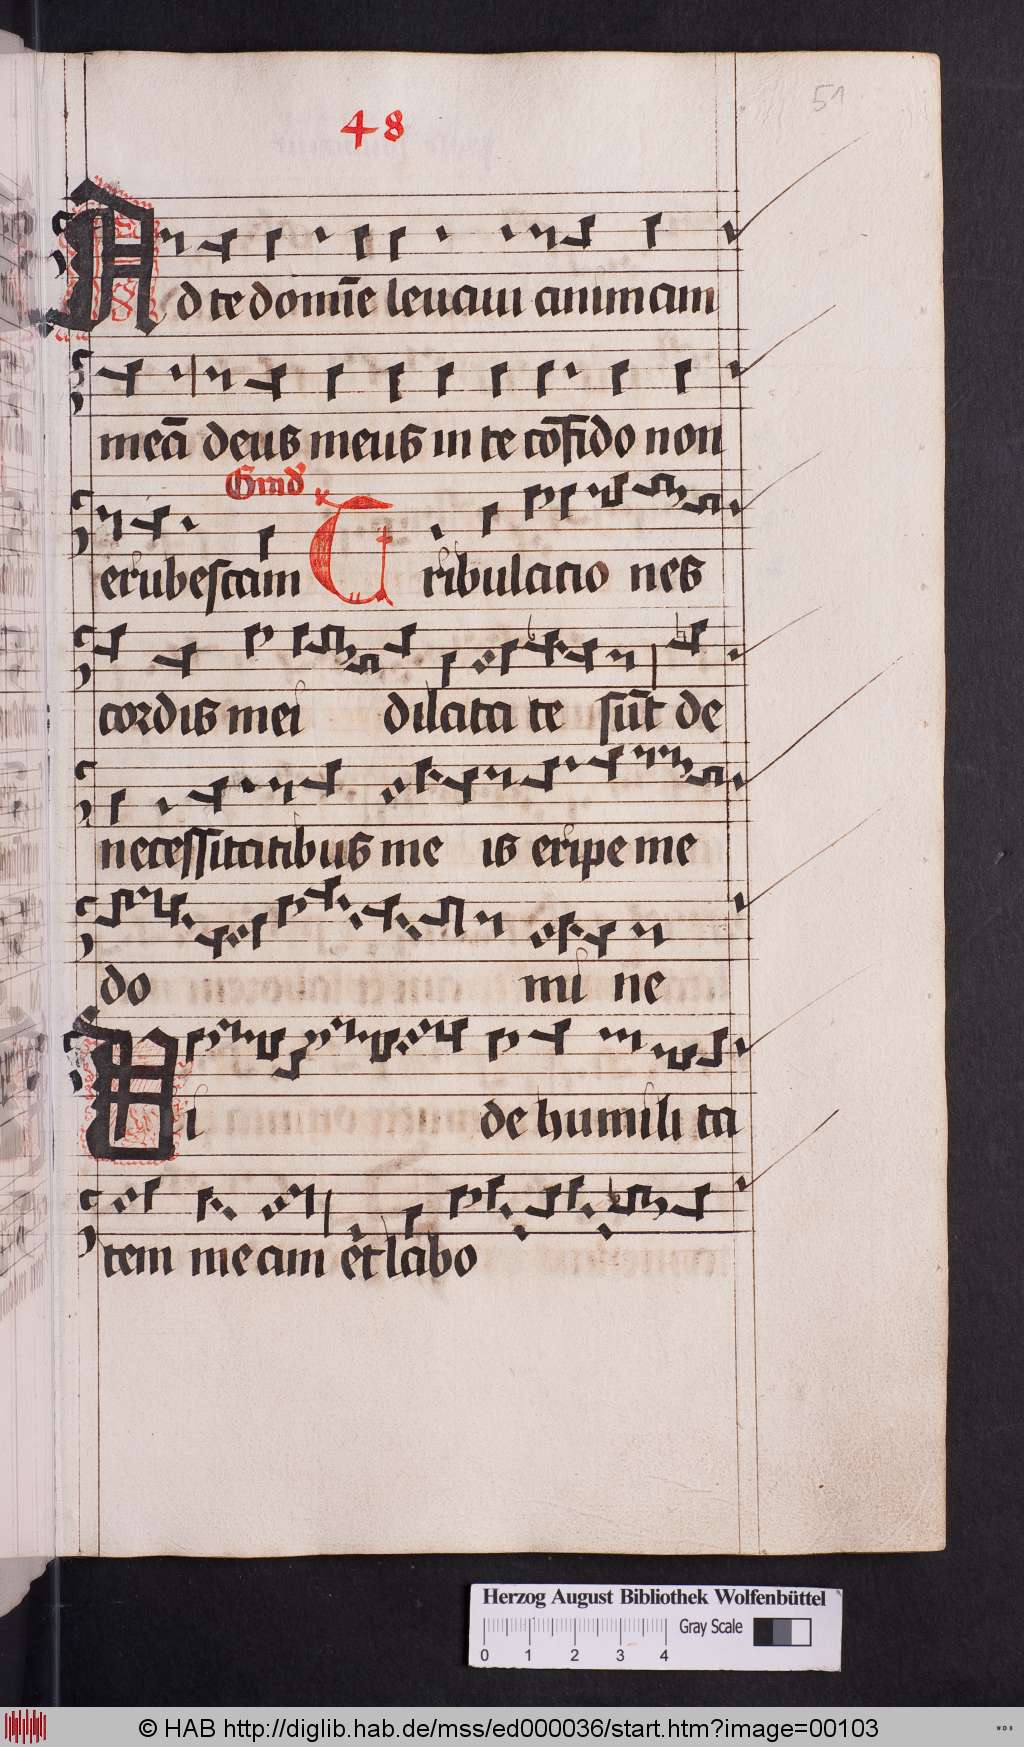 48
51
Ad te domīe leuaui animam
meā deus meus in te cōfido non
Grad'
erubescam Tribulacio nes
cordis mei dilata te sūt de
necessitatibus me is eripe me
do mi ne
Vi de humili ta
tem meam et labo
Herzog August Bibliothek Wolfenbüttel
Gray Scale
0 1 2 3 4
© HAB http://diglib.hab.de/mss/ed000036/start.htm?image=00103